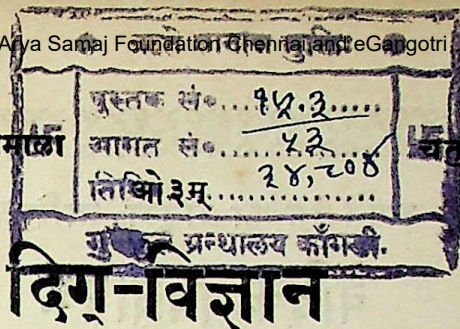 Arya Samaj Foundation Chennai and eGangotri
पुस्तक सं०....१५.३.....
५३
माला आगत सं०............
३४,८०४
तिथि ओ३म् ...........
ग्रन्थालय काँगड़ी.
दिग्-विज्ञान